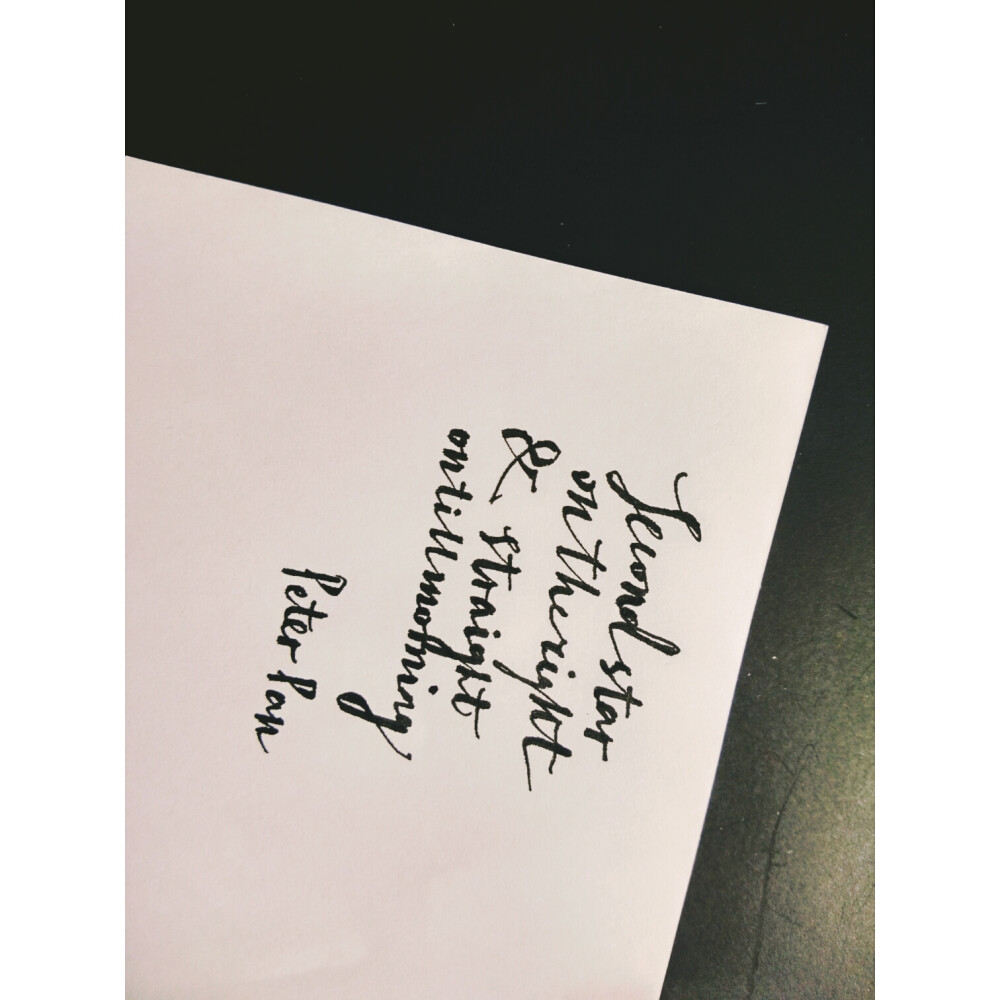 Second star
on the right
& straight
ontill morning
Peter Pan